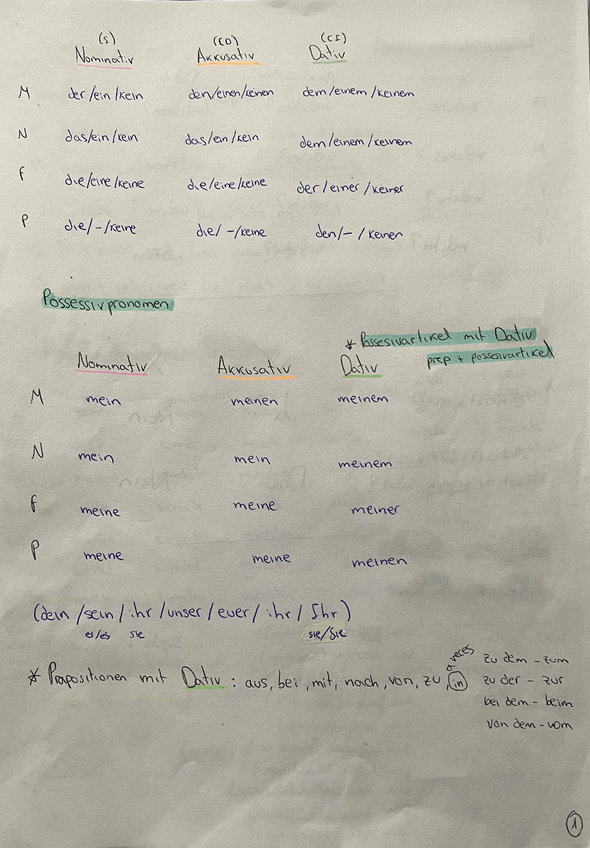 (S) (CD) (CI)
Nominativ Akkusativ Dativ
M der/ein/kein den/einen/keinen dem/einem/keinem
N das/ein/kein das/ein/kein dem/einem/keinem
F die/eine/keine die/eine/keine der/einer/keiner
P die/-/keine die/-/keine den/-/keinen
Possessivpronomen
* Possesivartikel mit Dativ
prep + possesivartikel
Nominativ Akkusativ Dativ
M mein meinen meinem
N mein mein meinem
F meine meine meiner
P meine meine meinen
(dein /sein / ihr /unser / euer / ihr / Ihr)
er/es sie sie/Sie
* Präpositionen mit Dativ : aus, bei, mit, nach, von, zu, in
a veces
zu dem - zum
zu der - zur
bei dem - beim
von dem - vom
1